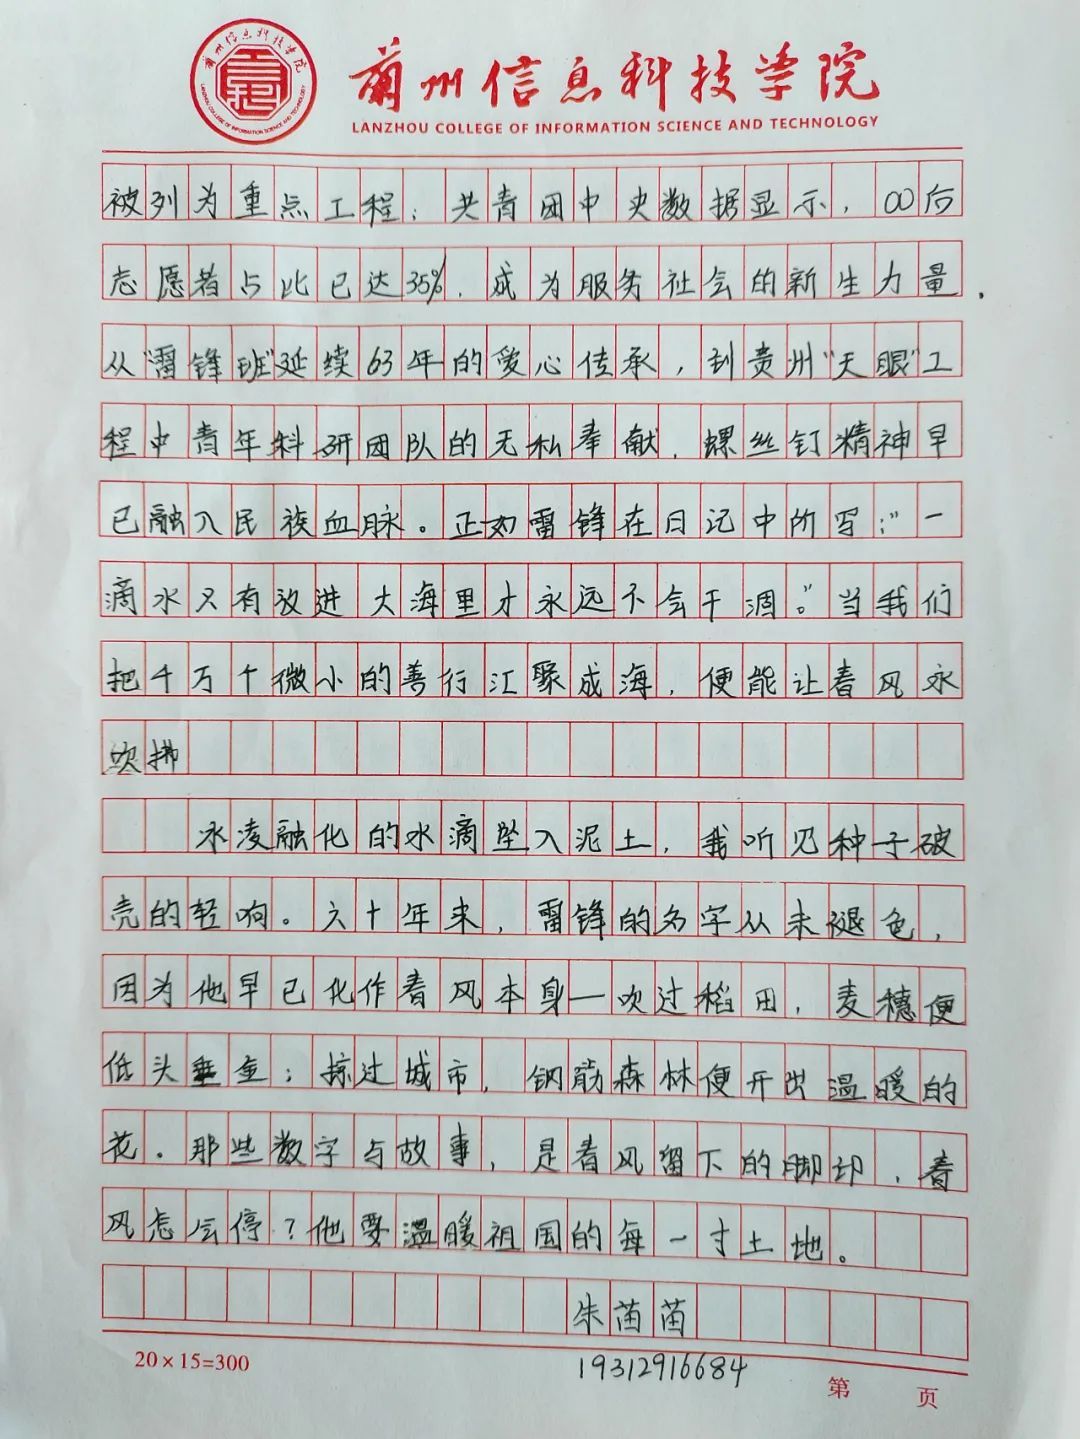 蘭州信息科技学院
LANZHOU COLLEGE OF INFORMATION SCIENCE AND TECHNOLOGY
蘭州信息科技学院
LANZHOU COLLEGE OF INFORMATION SCIENCE AND TECHNOLOGY
被列为重点工程；共青团中央数据显示，00后
志愿者占比已达35%，成为服务社会的新生力量.
从"雷锋班"延续63年的爱心传承，到贵州"天眼"工
程中青年科研团队的无私奉献，螺丝钉精神早
已融入民族血脉。正如雷锋在日记中所写："一
滴水只有放进大海里才永远不会干涸。"当我们
把千万个微小的善行汇聚成海，便能让春风永
吹拂
冰凌融化的水滴坠入泥土，我听见种子破
壳的轻响。六十年来，雷锋的名字从未褪色，
因为他早已化作春风本身—吹过稻田，麦穗便
低头垂金；掠过城市，钢筋森林便开出温暖的
花。那些数字与故事，是春风留下的脚印，春
风怎会停？他要温暖祖国的每一寸土地。
朱苗苗
20×15=300
19312916684
第 页